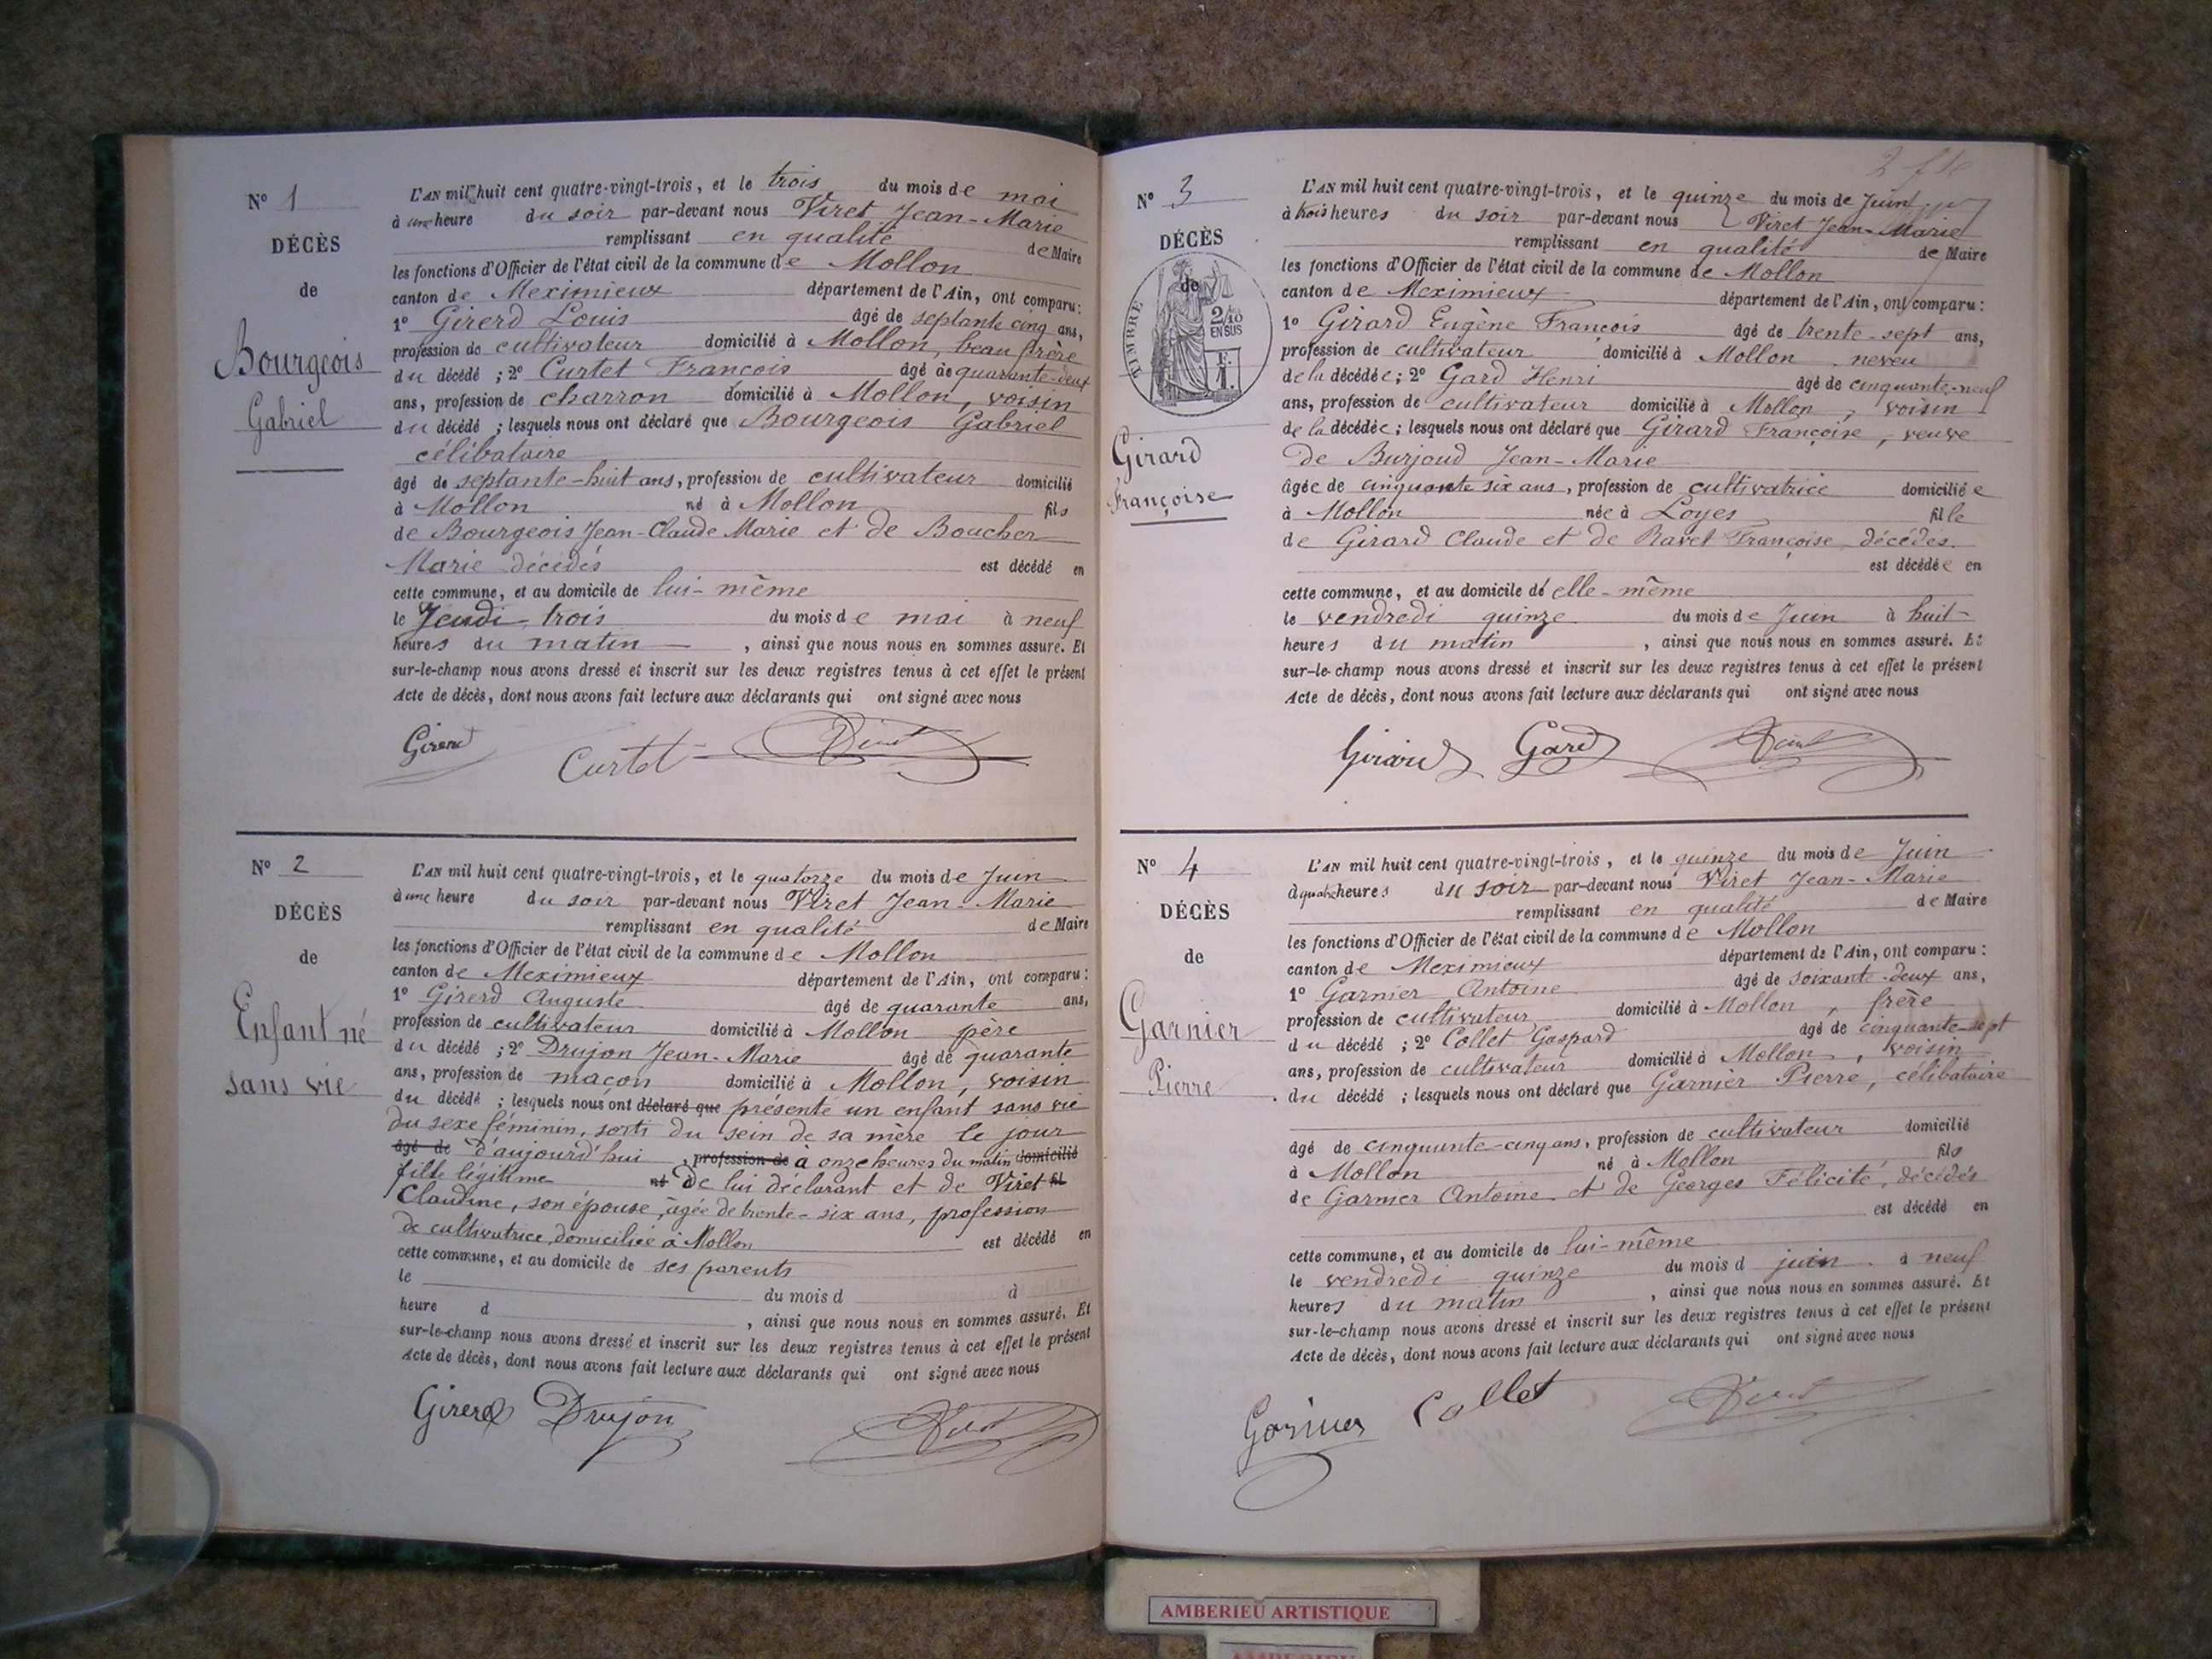 N° 1
DÉCÈS
de
Bourgeois
Gabriel
L'AN mil huit cent quatre-vingt-trois, et le trois du mois de mai
à une heure du soir par-devant nous Viret Jean-Marie
remplissant en qualité de Maire
les fonctions d'Officier de l'état civil de la commune de Mollon
canton de Meximieux département de l'Ain, ont comparu:
1° Girerd Louis âgé de septante cinq ans,
profession de cultivateur domicilié à Mollon, beau frère
du décédé ; 2° Curtet François âgé de quarante-deux
ans, profession de charron domicilié à Mollon, voisin
du décédé ; lesquels nous ont déclaré que Bourgeois Gabriel
célibataire
âgé de septante-huit ans, profession de cultivateur domicilié
à Mollon né à Mollon fils
de Bourgeois Jean-Claude Marie et de Boucher
Marie décédés est décédé en
cette commune, et au domicile de lui-même
le Jeudi trois du mois de mai à neuf
heures du matin , ainsi que nous nous en sommes assuré. Et
sur-le-champ nous avons dressé et inscrit sur les deux registres tenus à cet effet le présent
Acte de décès, dont nous avons fait lecture aux déclarants qui ont signé avec nous
Girerd Curtet Viret
N° 2
DÉCÈS
de
Enfant né
sans vie
L'AN mil huit cent quatre-vingt-trois, et le quatorze du mois de Juin
à une heure du soir par-devant nous Viret Jean-Marie
remplissant en qualité de Maire
les fonctions d'Officier de l'état civil de la commune de Mollon
canton de Meximieux département de l'Ain, ont comparu:
1° Girerd Auguste âgé de quarante ans,
profession de cultivateur domicilié à Mollon père
du décédé ; 2° Drujon Jean-Marie âgé de quarante
ans, profession de maçon domicilié à Mollon, voisin
du décédé ; lesquels nous ont déclaré que présenté un enfant sans vie
du sexe féminin, sorti du sein de sa mère le jour
âgé de d'aujourd'hui , profession de à onze heures du matin domicilié
fille légitime né de lui déclarant et de Viret fil
Claudine, son épouse, âgée de trente-six ans, profession
de cultivatrice, domiciliée à Mollon est décédé en
cette commune, et au domicile de ses parents
le du mois d à
heure d , ainsi que nous nous en sommes assuré. Et
sur-le-champ nous avons dressé et inscrit sur les deux registres tenus à cet effet le présent
Acte de décès, dont nous avons fait lecture aux déclarants qui ont signé avec nous
Girerd Drujon Viret
N° 3
DÉCÈS
de
TIMBRE
2/10
EN SUS
F.
1.
Girard
Françoise
L'AN mil huit cent quatre-vingt-trois, et le quinze du mois de Juin
à trois heures du soir par-devant nous Viret Jean-Marie
remplissant en qualité de Maire
les fonctions d'Officier de l'état civil de la commune de Mollon
canton de Meximieux département de l'Ain, ont comparu:
1° Girard Eugène François âgé de trente-sept ans,
profession de cultivateur domicilié à Mollon neveu
de la décédée ; 2° Gard Henri âgé de cinquante-neuf
ans, profession de cultivateur domicilié à Mollon, voisin
de la décédée ; lesquels nous ont déclaré que Girard Françoise, veuve
de Burjoud Jean-Marie
âgée de cinquante six ans, profession de cultivatrice domiciliée
à Mollon née à Loyes fille
de Girard Claude et de Ravet Françoise décédés.
est décédée en
cette commune, et au domicile de elle-même
le vendredi quinze du mois de Juin à huit
heures du matin , ainsi que nous nous en sommes assuré. Et
sur-le-champ nous avons dressé et inscrit sur les deux registres tenus à cet effet le présent
Acte de décès, dont nous avons fait lecture aux déclarants qui ont signé avec nous
Girard Gard Viret
N° 4
DÉCÈS
de
Garnier
Pierre
L'AN mil huit cent quatre-vingt-trois, et le quinze du mois de Juin
à quatre heures du soir par-devant nous Viret Jean-Marie
remplissant en qualité de Maire
les fonctions d'Officier de l'état civil de la commune de Mollon
canton de Meximieux département de l'Ain, ont comparu:
1° Garnier Antoine âgé de soixante-deux ans,
profession de cultivateur domicilié à Mollon, frère
du décédé ; 2° Collet Gaspard âgé de cinquante-sept
ans, profession de cultivateur domicilié à Mollon, voisin
du décédé ; lesquels nous ont déclaré que Garnier Pierre, célibataire
âgé de cinquante-cinq ans, profession de cultivateur domicilié
à Mollon né à Mollon fils
de Garnier Antoine et de Georges Félicité, décédés
est décédé en
cette commune, et au domicile de lui-même
le vendredi quinze du mois d juin à neuf
heures du matin , ainsi que nous nous en sommes assuré. Et
sur-le-champ nous avons dressé et inscrit sur les deux registres tenus à cet effet le présent
Acte de décès, dont nous avons fait lecture aux déclarants qui ont signé avec nous
Garnier Collet Viret
AMBERIEU ARTISTIQUE
AMBERIEU